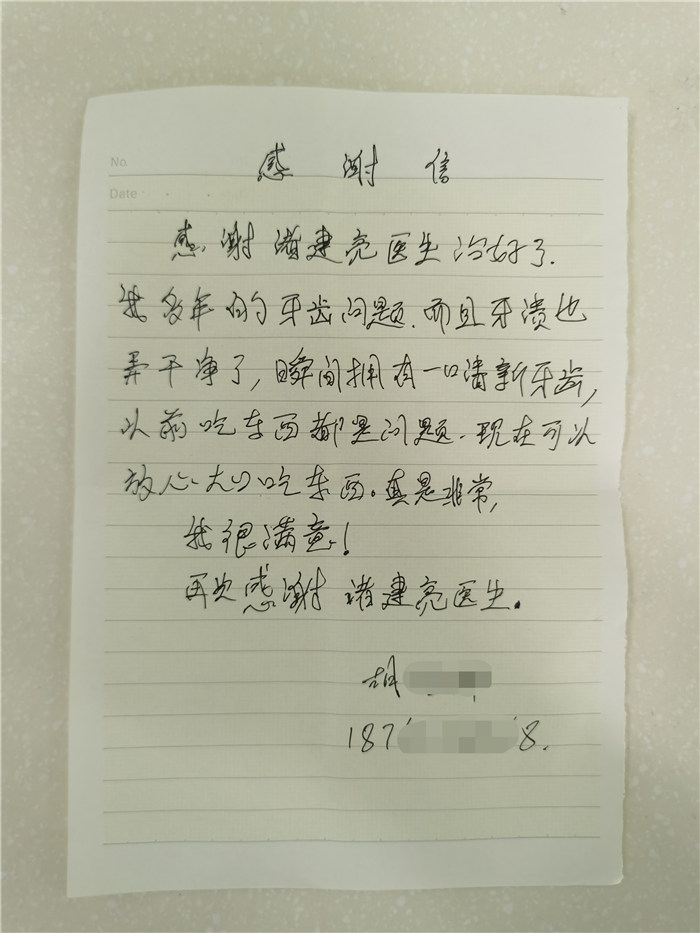 No.
Date
感谢信
感谢诸建亮医生治好了.
我多年的牙齿问题.而且牙渍也
弄干净了,瞬间拥有一口清新牙齿,
以前吃东西都是问题.现在可以
放心大口吃东西。真是非常,
我很满意!
再次感谢诸建亮医生.
胡
187 8.